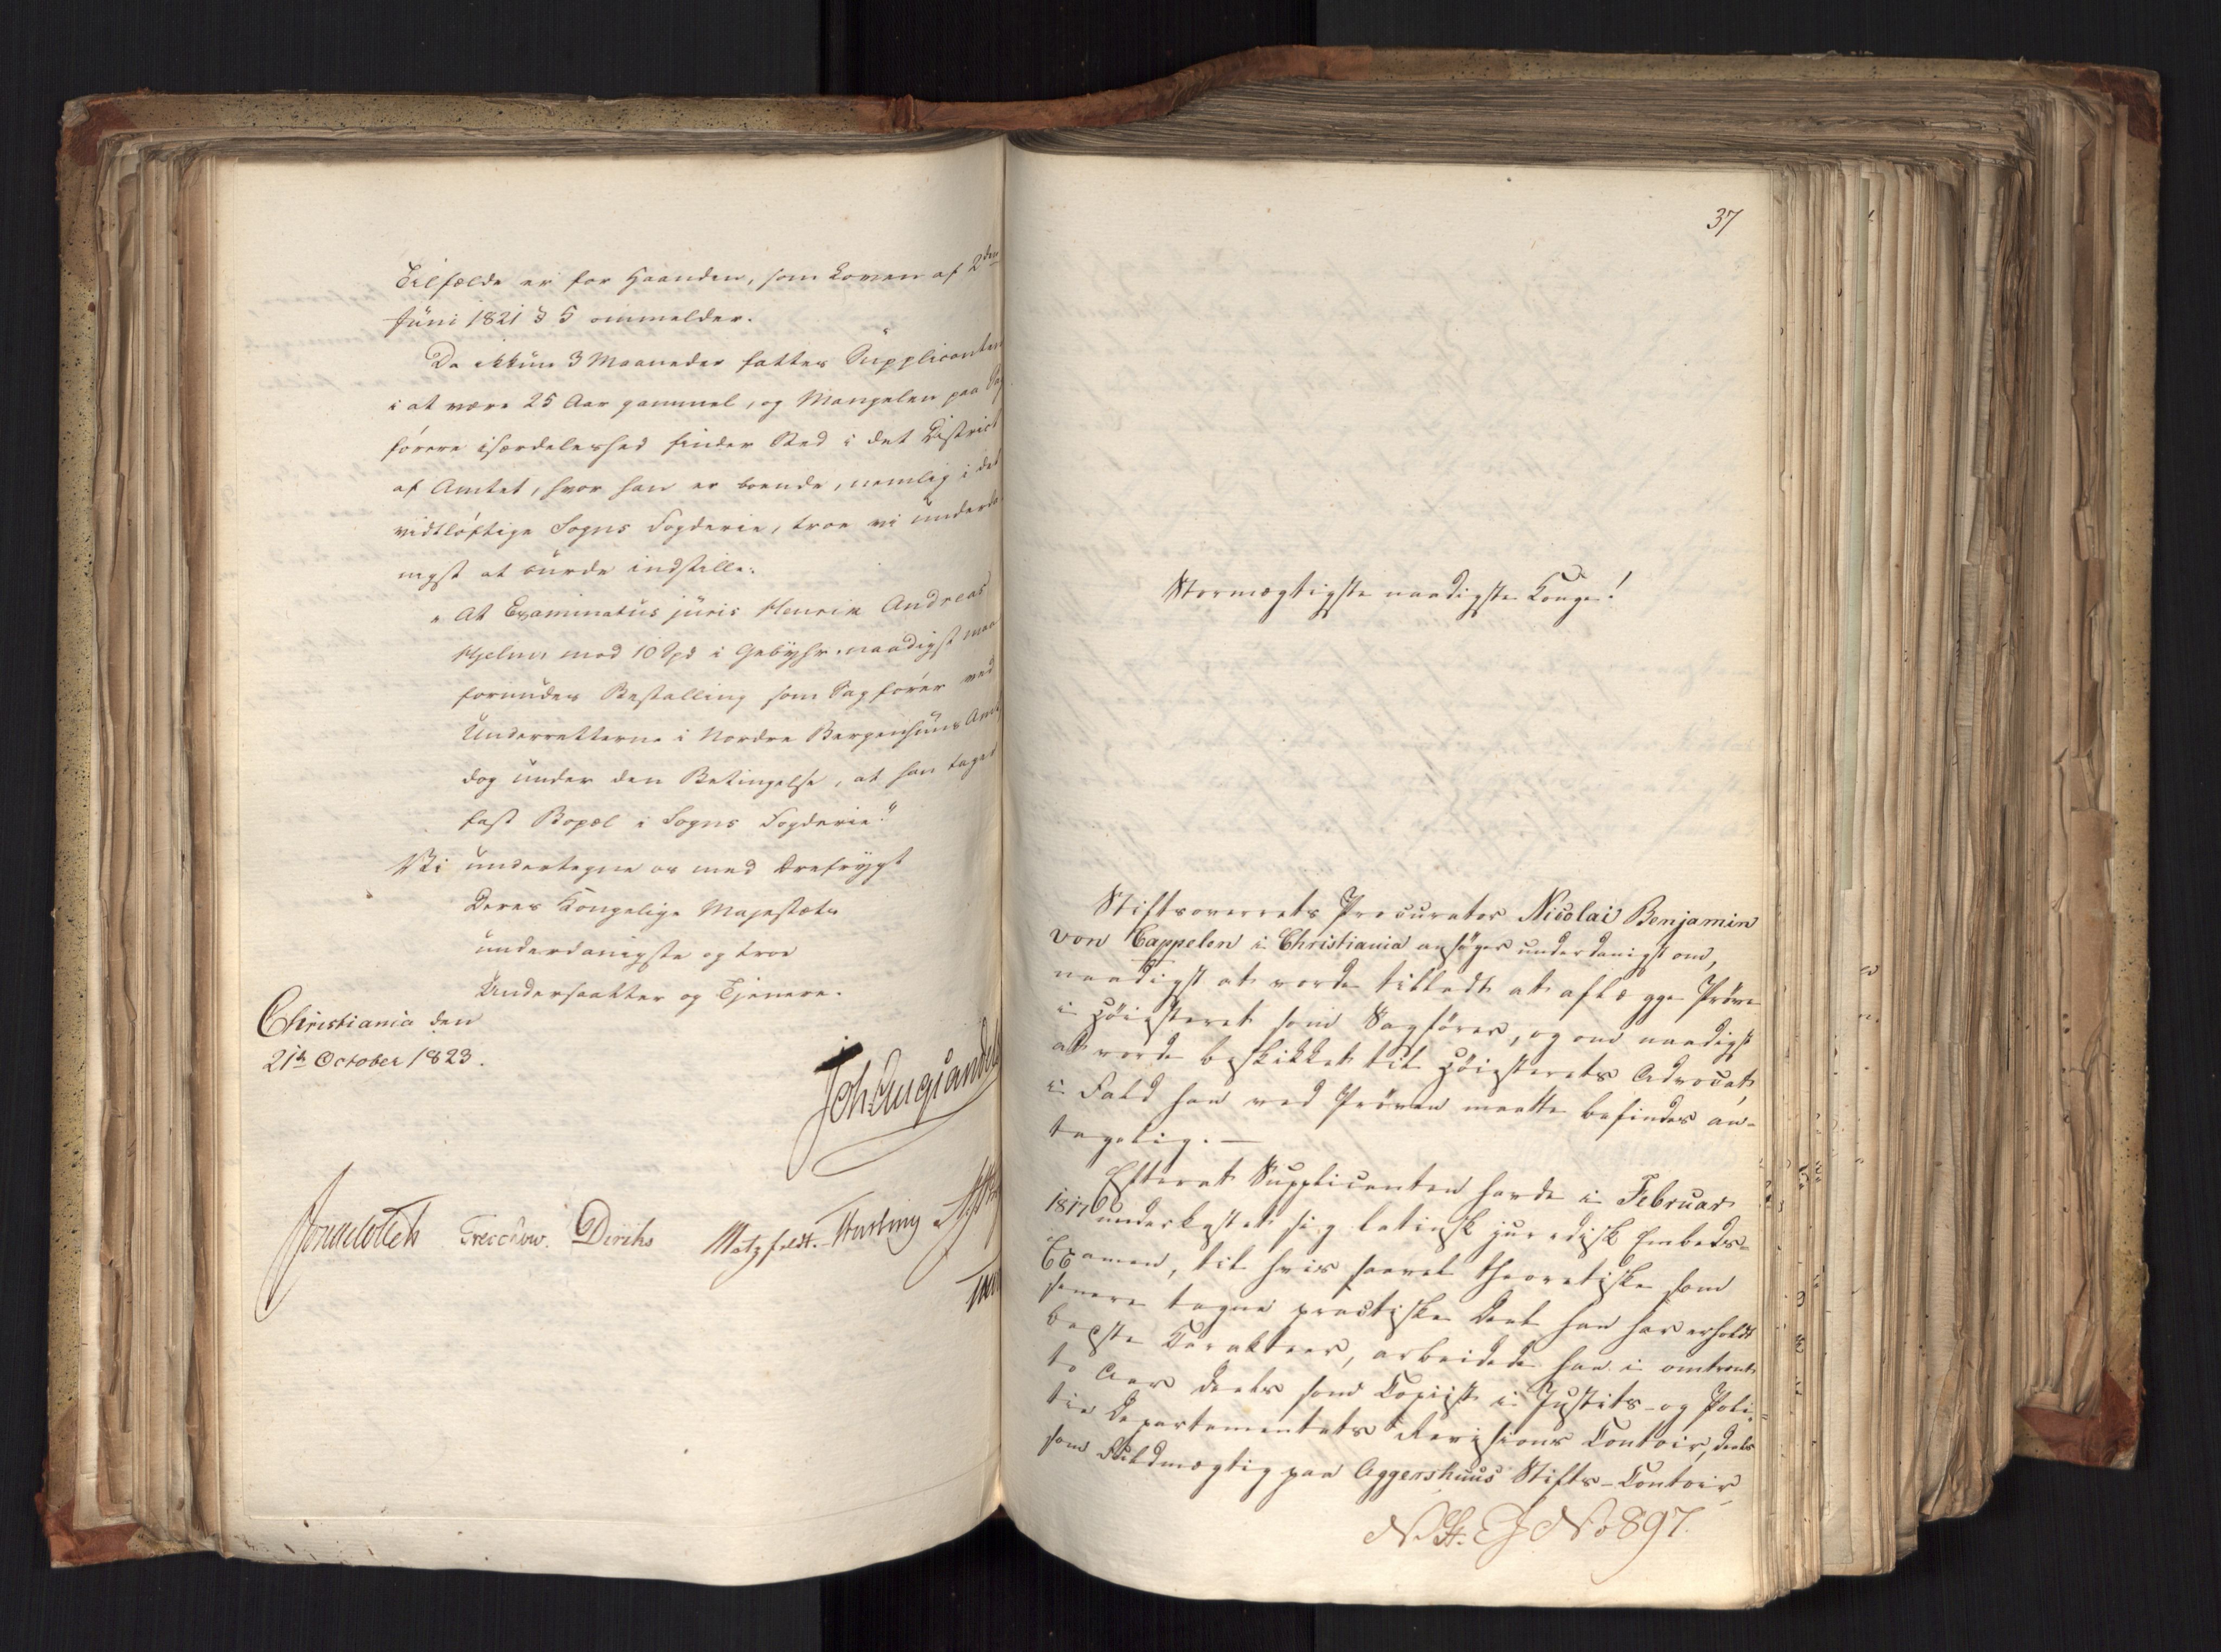 Tilfælde er for Haanden, som Loven af 2den
Juni 1821 § 5 ommelder.
Da ikkun 3 Maaneder fattes Supplicanten
i at være 25 Aar gammel, og Mangelen paa Sag
förere isærdeleshed finder Sted i det District
af Amtet, hvor han er boende, nemlig i det
vidtlöftige Sogns Fogderie, troe vi underda
nigst at burde indstille:
"At Examinatus juris Henrik Andreas
Hjelm mod 10 Spd i Gebyhr naadigst maa
forundes Bestalling som Sagförer ved
Underretterne i Nordre Bergenhuus Amt
dog under den Betingelse, at han tager
fast Bopæl i Sogns Fogderie."
Vi undertegne os med Ærefrygt
Deres Kongelige Majestæts
underdanigste og troe
Undersaatter og Tjenere.
Christiania den
21de October 1823.
Joh. Aug. Sandels
Jonas Collett Treschow. Diriks Motzfeldt. Fasting
37
Stormægtigste naadigste Konge!
Stiftsoverrets Procurator Nicolai Benjamin
von Cappelen i Christiania ansöger underdanigst om,
naadigst at vorde tilladt at aflægge Pröve
i Höiesteret som Sagförer, og om naadigst
at vorde beskikket til Höiesterets Advocat,
i Fald han ved Pröven maatte befindes an-
tagelig. —
Efterat Supplicanten havde i Februar
1817 underkastet sig latinsk juridisk Embeds-
Examen, til hvis saavel theoretiske som
senere tagne practiske Deel han har erholdt
bedste Karakteer, arbeidede han i omtrent
to Aar deels som Copiist i Justits- og Poli-
tie Departementets Revisions Contoir, deels
som Fuldmægtig paa Aggershuus Stifts-Contoir
No 897.